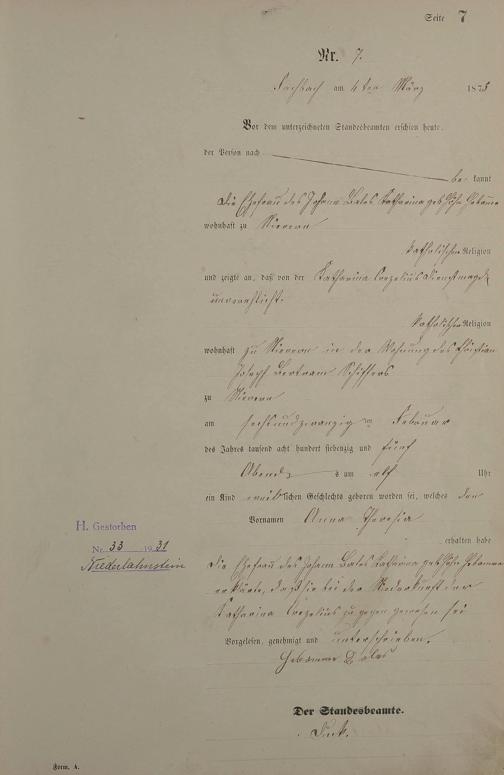 Seite 7
Nr. 7.
Fachbach am 4ten März 1875
Vor dem unterzeichneten Standesbeamten erschien heute,
der Person nach
be kannt
die Ehefrau des Johann Bales Katharina geb. Hebamme
wohnhaft zu Nievern
katholischer Religion
und zeigte an, daß von der Katharina Corzelius Dienstmagd
unverehelicht
katholischer Religion
wohnhaft zu Nievern in der Wohnung des Christian
Joseph Bertram Schiffers
zu Nievern
am sechsundzwanzig ten Februar
des Jahres tausend acht hundert siebenzig und fünf
Abends um elf Uhr
ein Kind weiblichen Geschlechts geboren worden sei, welches den
Vornamen Anna Theresia
erhalten habe
die Ehefrau des Johann Bales Katharina geb. Hebamme
erklärte, daß sie bei der Niederkunft der
Katharina Corzelius zugegen gewesen sei
Vorgelesen, genehmigt und unterschrieben.
Hebamme Bales
H. Gestorben
Nr. 33 1931
Niederlahnstein
Der Standesbeamte.
Form. A.